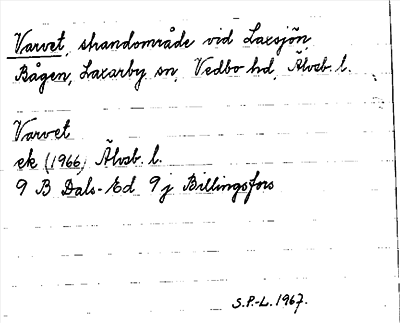 Varvet, strandområde vid Laxsjön,
Bågen, Laxarby sn, Vedbo hd, Älvsb. l.
Varvet
ek (1966) Älvsb. l.
9 B Dals-Ed 9j Billingsfors
S.P.-L. 1967.